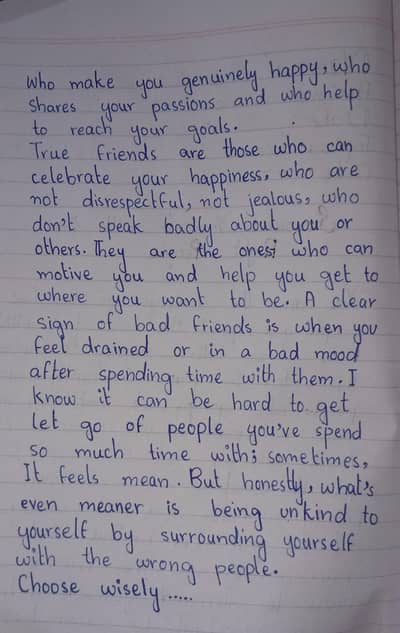 Who make you genuinely happy, who
shares your passions and who help
to reach your goals.
True friends are those who can
celebrate your happiness, who are
not disrespectful, not jealous, who
don't speak badly about you or
others. They are the ones; who can
motive you and help you get to
where you want to be. A clear
sign of bad friends is when you
feel drained or in a bad mood
after spending time with them. I
know it can be hard to get
let go of people you've spend
so much time with; sometimes,
It feels mean. But honestly, what's
even meaner is being unkind to
yourself by surrounding yourself
with the wrong people.
Choose wisely.....